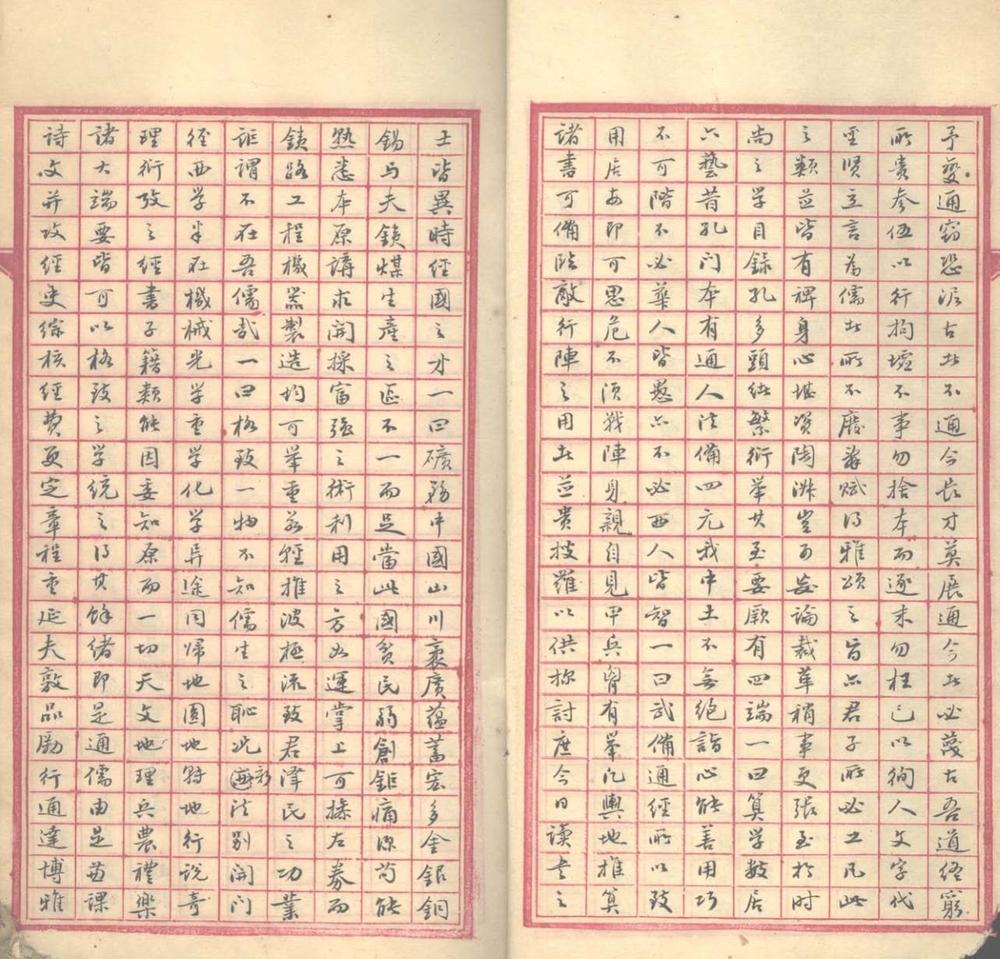 予變通窃恐泥古者不通今長才莫展通今者必蔑古吾道終窮
所貴參伍以行拘墟不事勿捨本而逐末勿枉己以徇人文字代
聖賢立言為儒者所不廢辭賦得雅頌之旨亦君子所必工凡此
之類並皆有裨身心堪資陶淑豈可妄論裁革稍事更張至於時
尚之學目錄孔多頭緒繁衍舉其至要厥有四端一曰算學數居
六藝昔孔門本有通人法備四元我中土不無絕詣心能善用巧
不可階不必華人皆愚亦不必西人皆智一曰武備通經所以致
用居安即可思危不須戰陣身親自見甲兵胷有舉凡輿地推算
諸書可備臨敵行陣之用者並貴搜羅以供探討庶今日讀書之
士皆異時經國之才一曰礦務中國山川袤廣蘊蓄宏多金銀銅
錫与夫鐵煤生產之區不一而足當此國貧民弱創鉅痛深苟能
熟悉本原講求開採富强之術利用之方如運掌上可操左券而
鐵路工程機器製造均可舉重若輕推波極流致君澤民之功業
詎謂不在吾儒哉一曰格致一物不知儒生之恥況西彩法別開門
徑西学半在機械光学重学化学异途同歸地圓地转地行說奇
理衍攷之經書子籍類能因委知原而一切天文地理兵農禮樂
諸大端要皆可以格致之学統之得其餘緒即是通儒由是茜課
詩文并攷經史綜核經費更定章程重延夫敦品勵行通達博雅